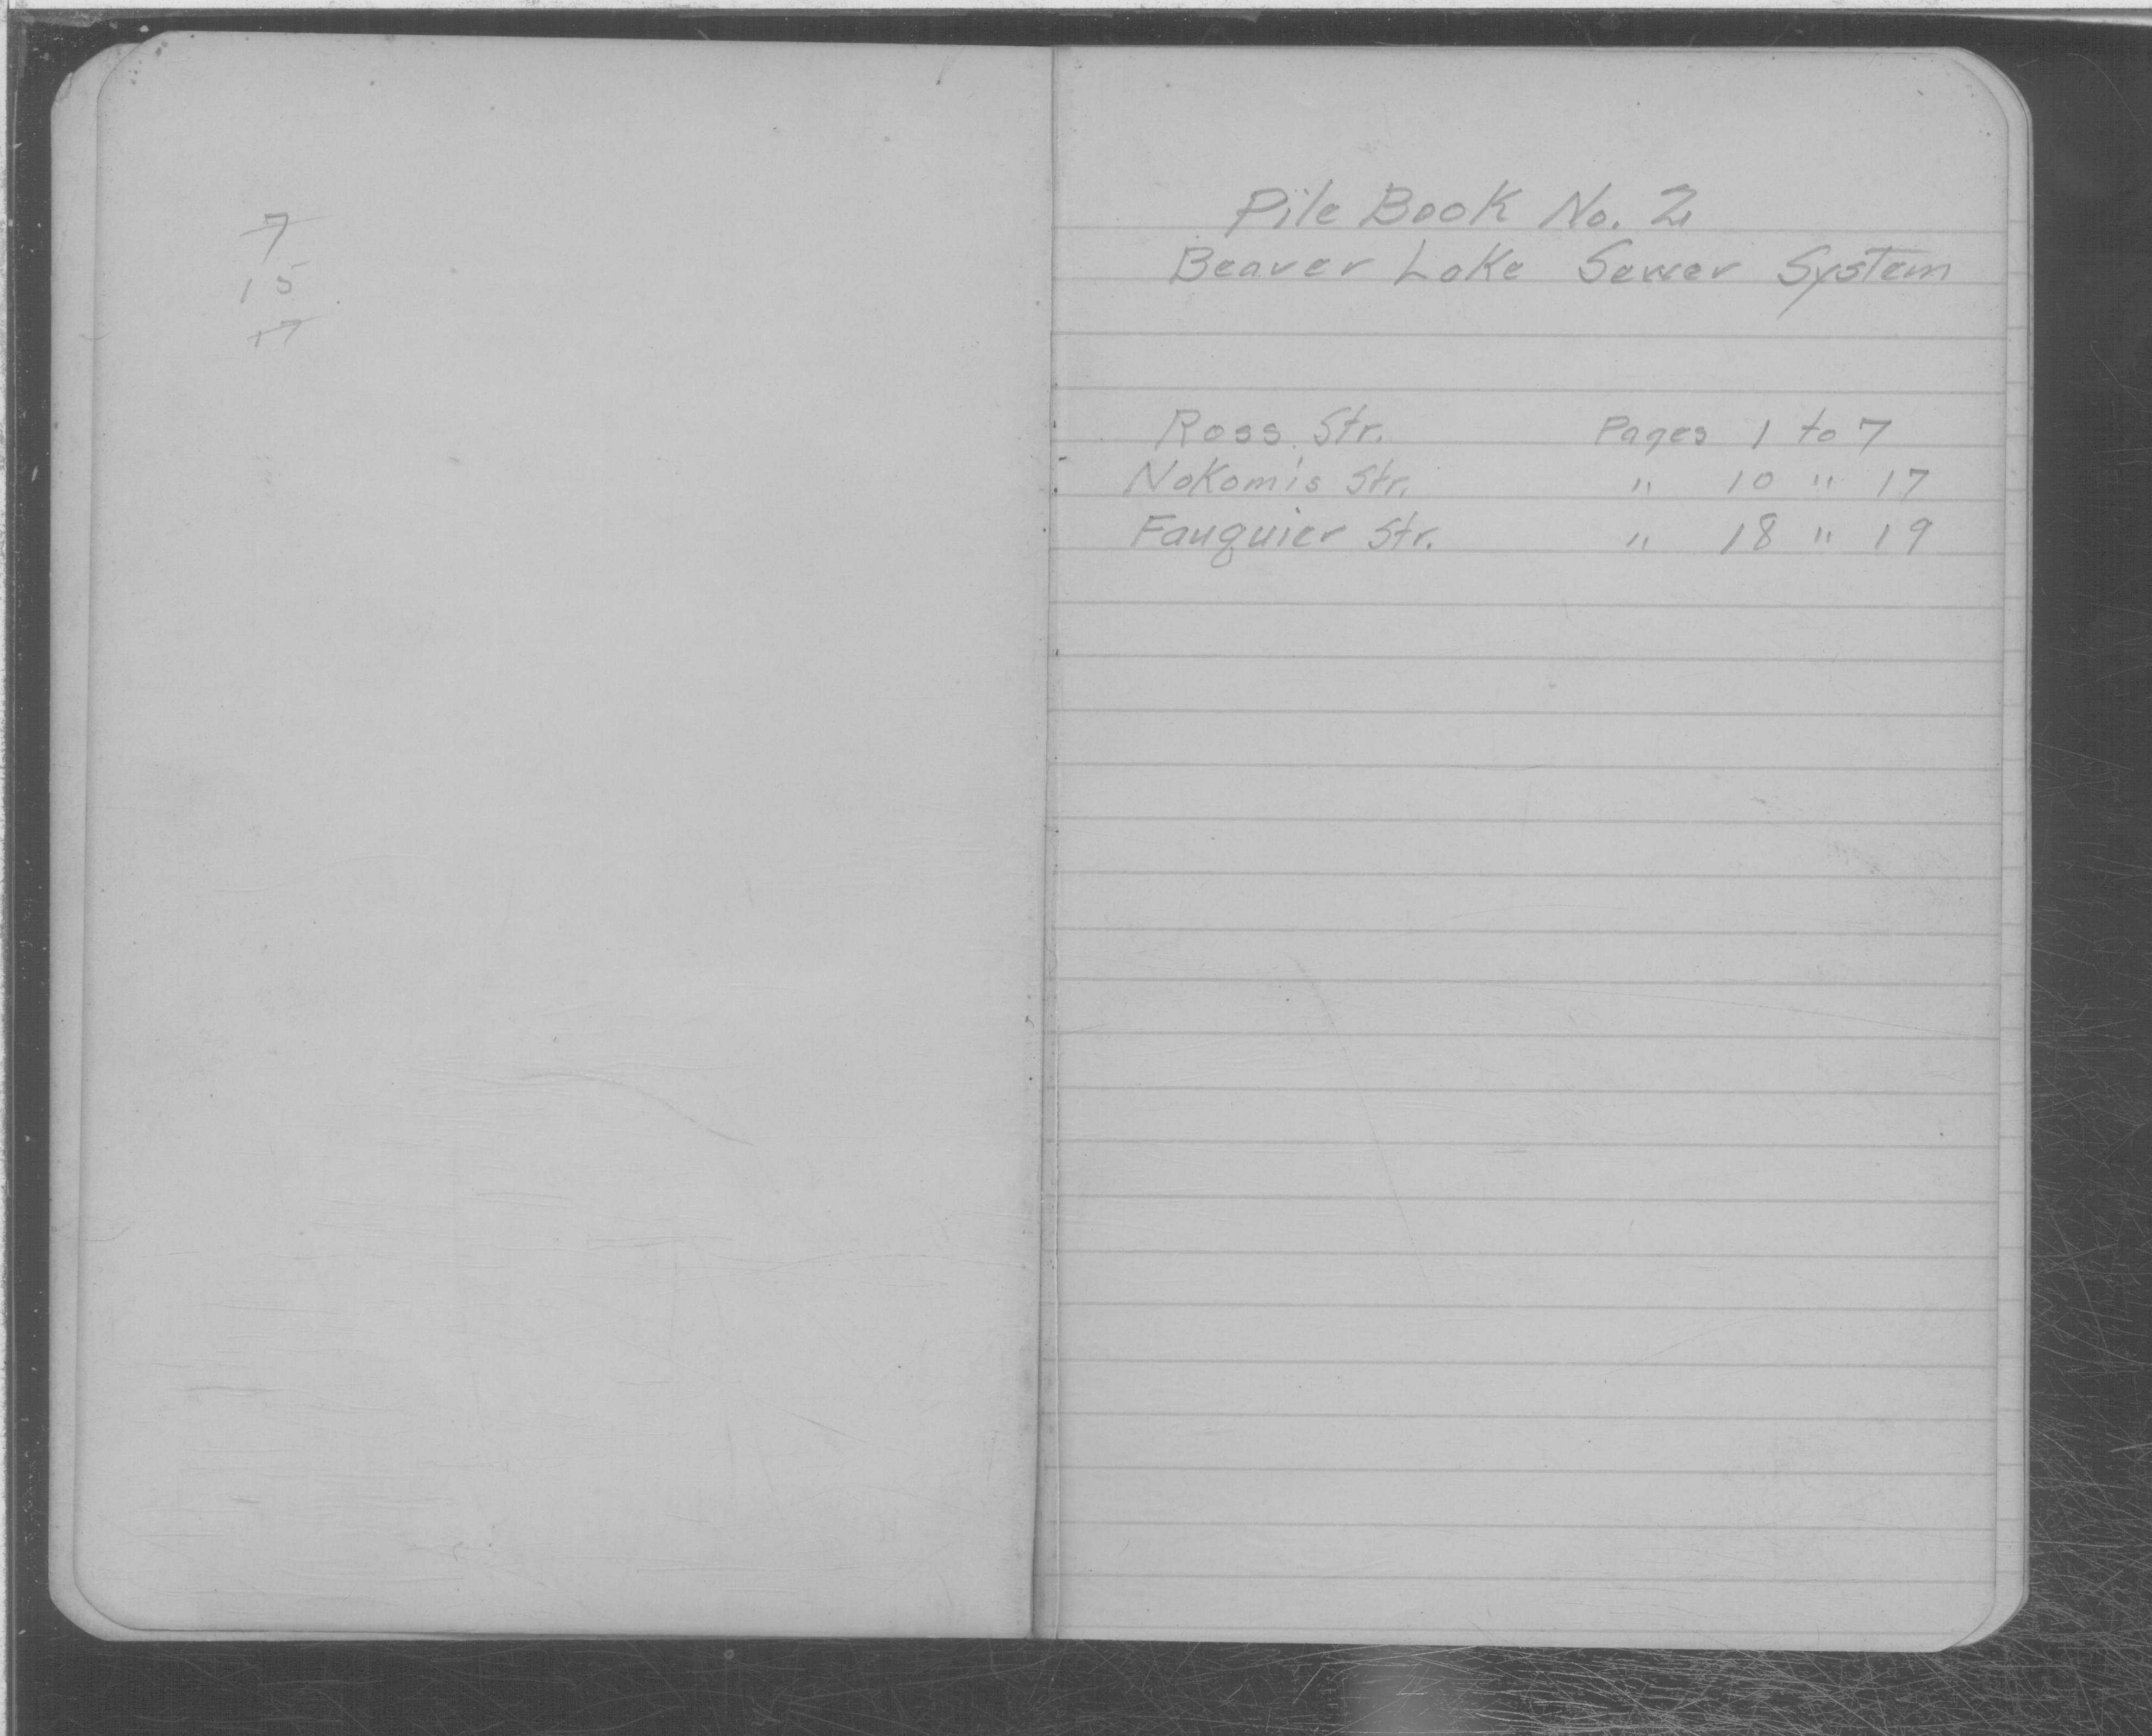 7
15
17
Pile Book No. 2
Beaver Lake Sewer System
Ross Str. Pages 1 to 7
Nokomis Str. " 10 " 17
Fauquier Str. " 18 " 19